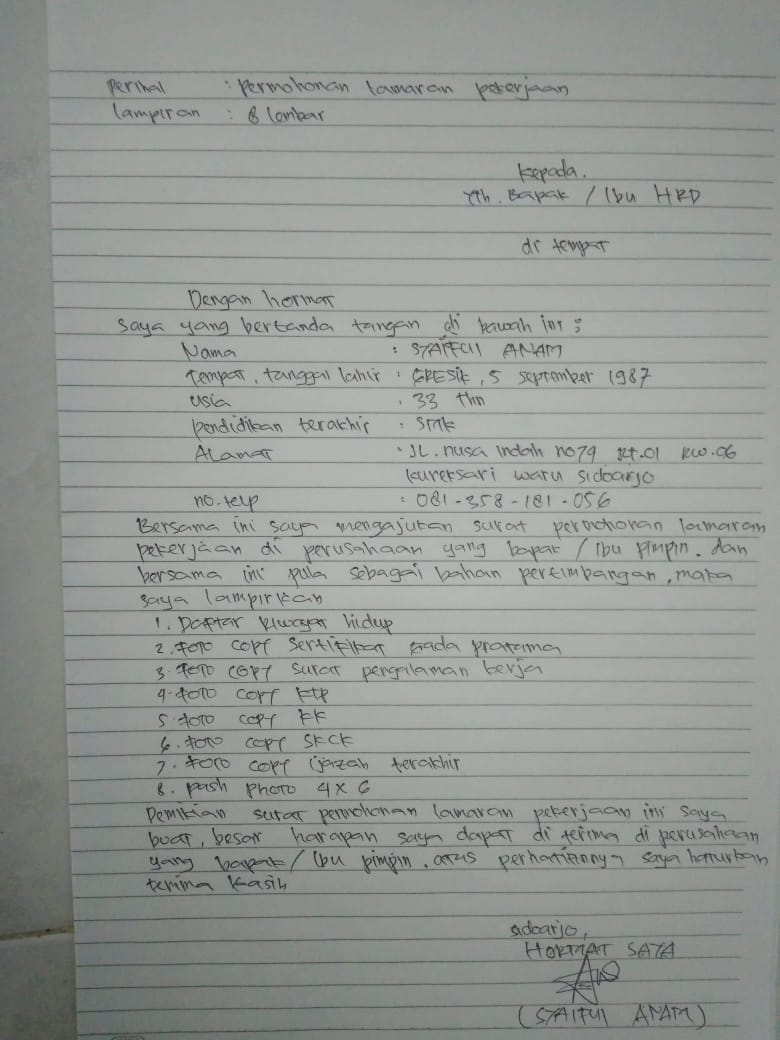 Perihal : Permohonan lamaran pekerjaan
Lampiran : 8 lembar
Kepada.
Yth. Bapak / Ibu HRD
di tempat
Dengan hormat
Saya yang bertanda tangan di bawah ini :
Nama : SYAIFUl ANAM
Tempat, tanggal lahir : GRESIK, 5 september 1987
Usia : 33 thn
Pendidikan terakhir : SMK
Alamat : JL. nusa indah no 79 Rt.01 Rw.06
Kureksari waru sidoarjo
no. telp : 081-358-181-056
Bersama ini saya mengajukan surat permohonan lamaran
pekerjaan di perusahaan yang bapak / ibu pimpin. dan
bersama ini pula sebagai bahan pertimbangan, maka
saya lampirkan
1. Daftar Riwayat hidup
2. Foto copy Sertifikat gada pratama
3. Foto copy surat pengalaman kerja
4. Foto copy KTP
5. Foto copy KK
6. Foto copy SKCK
7. Foto copy ijazah terakhir
8. pash photo 4 x 6
Demikian surat permohonan lamaran pekerjaan ini saya
buat, besar harapan saya dapat di terima di perusahaan
yang bapak / ibu pimpin. atas perhatiannya saya haturkan
terima kasih
sidoarjo,
HORMAT SAYA
(SYAIFUl ANAM)